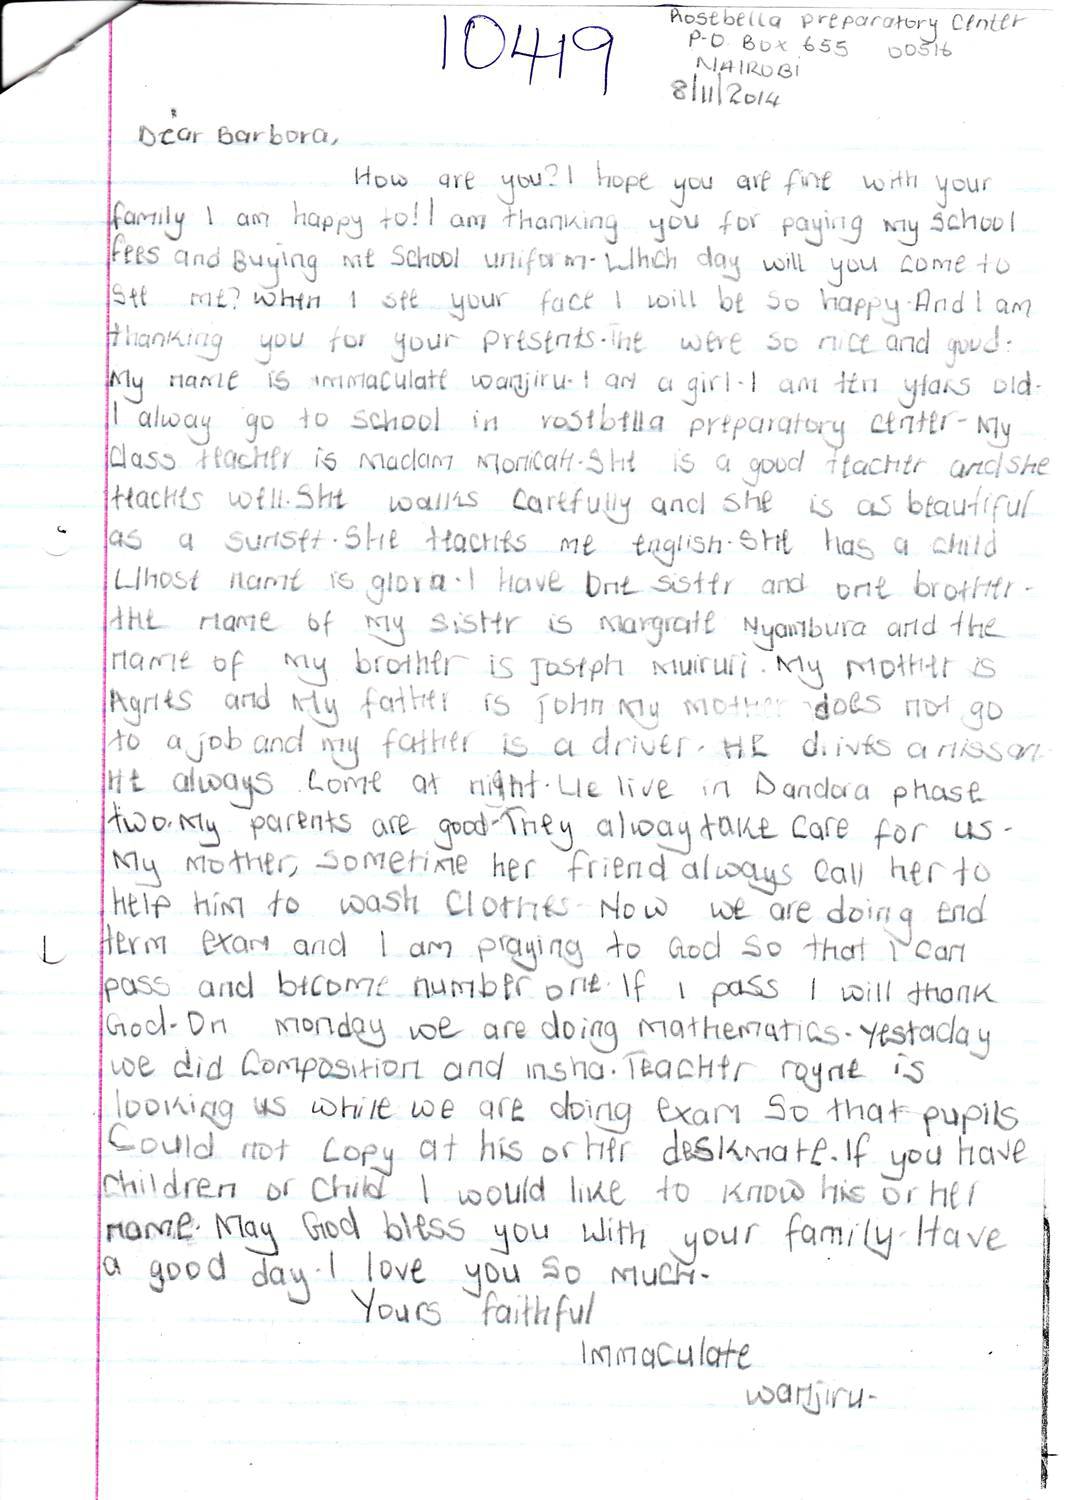 10419
Rosebella preparatory Center
P.O. Box 655 00516
NAIROBI
8/11/2014
Dear Barbora,
How are you? I hope you are fine with your
family I am happy to! I am thanking you for paying my school
fees and Buying me School uniform. Which day will you come to
see me? When I see your face I will be so happy. And I am
thanking you for your presents. The were so nice and good.
My name is immaculate wanjiru. I am a girl. I am ten years old.
I alway go to school in rosebella preparatory center. My
class teacher is Madam Monicah. She is a good teacher and she
teaches well. She walks carefully and she is as beautiful
as a sunset. She teaches me english. She has a child
Whose name is gloria. I have one sister and one brother.
the name of my sister is Margrate Nyambura and the
name of my brother is joseph Muiruri. My Mother is
Agnes and My father is john My mother does not go
to a job and my father is a driver. HE drives a nissan.
He always come at night. We live in Dandora phase
two. My parents are good. They alway take care for us.
My mother, sometime her friend always call her to
help him to wash clothes. Now we are doing end
term exam and I am praying to God so that I can
pass and become number one. If I pass I will thank
God. On monday we are doing Mathematics. yestaday
we did Composition and insha. Teacher rayne is
looking us while we are doing exam So that pupils
Could not copy at his or her deskmate. If you have
children or child I would like to know his or her
name. May God bless you with your family. Have
a good day. I love you so much.
Yours faithful
Immaculate
wanjiru.